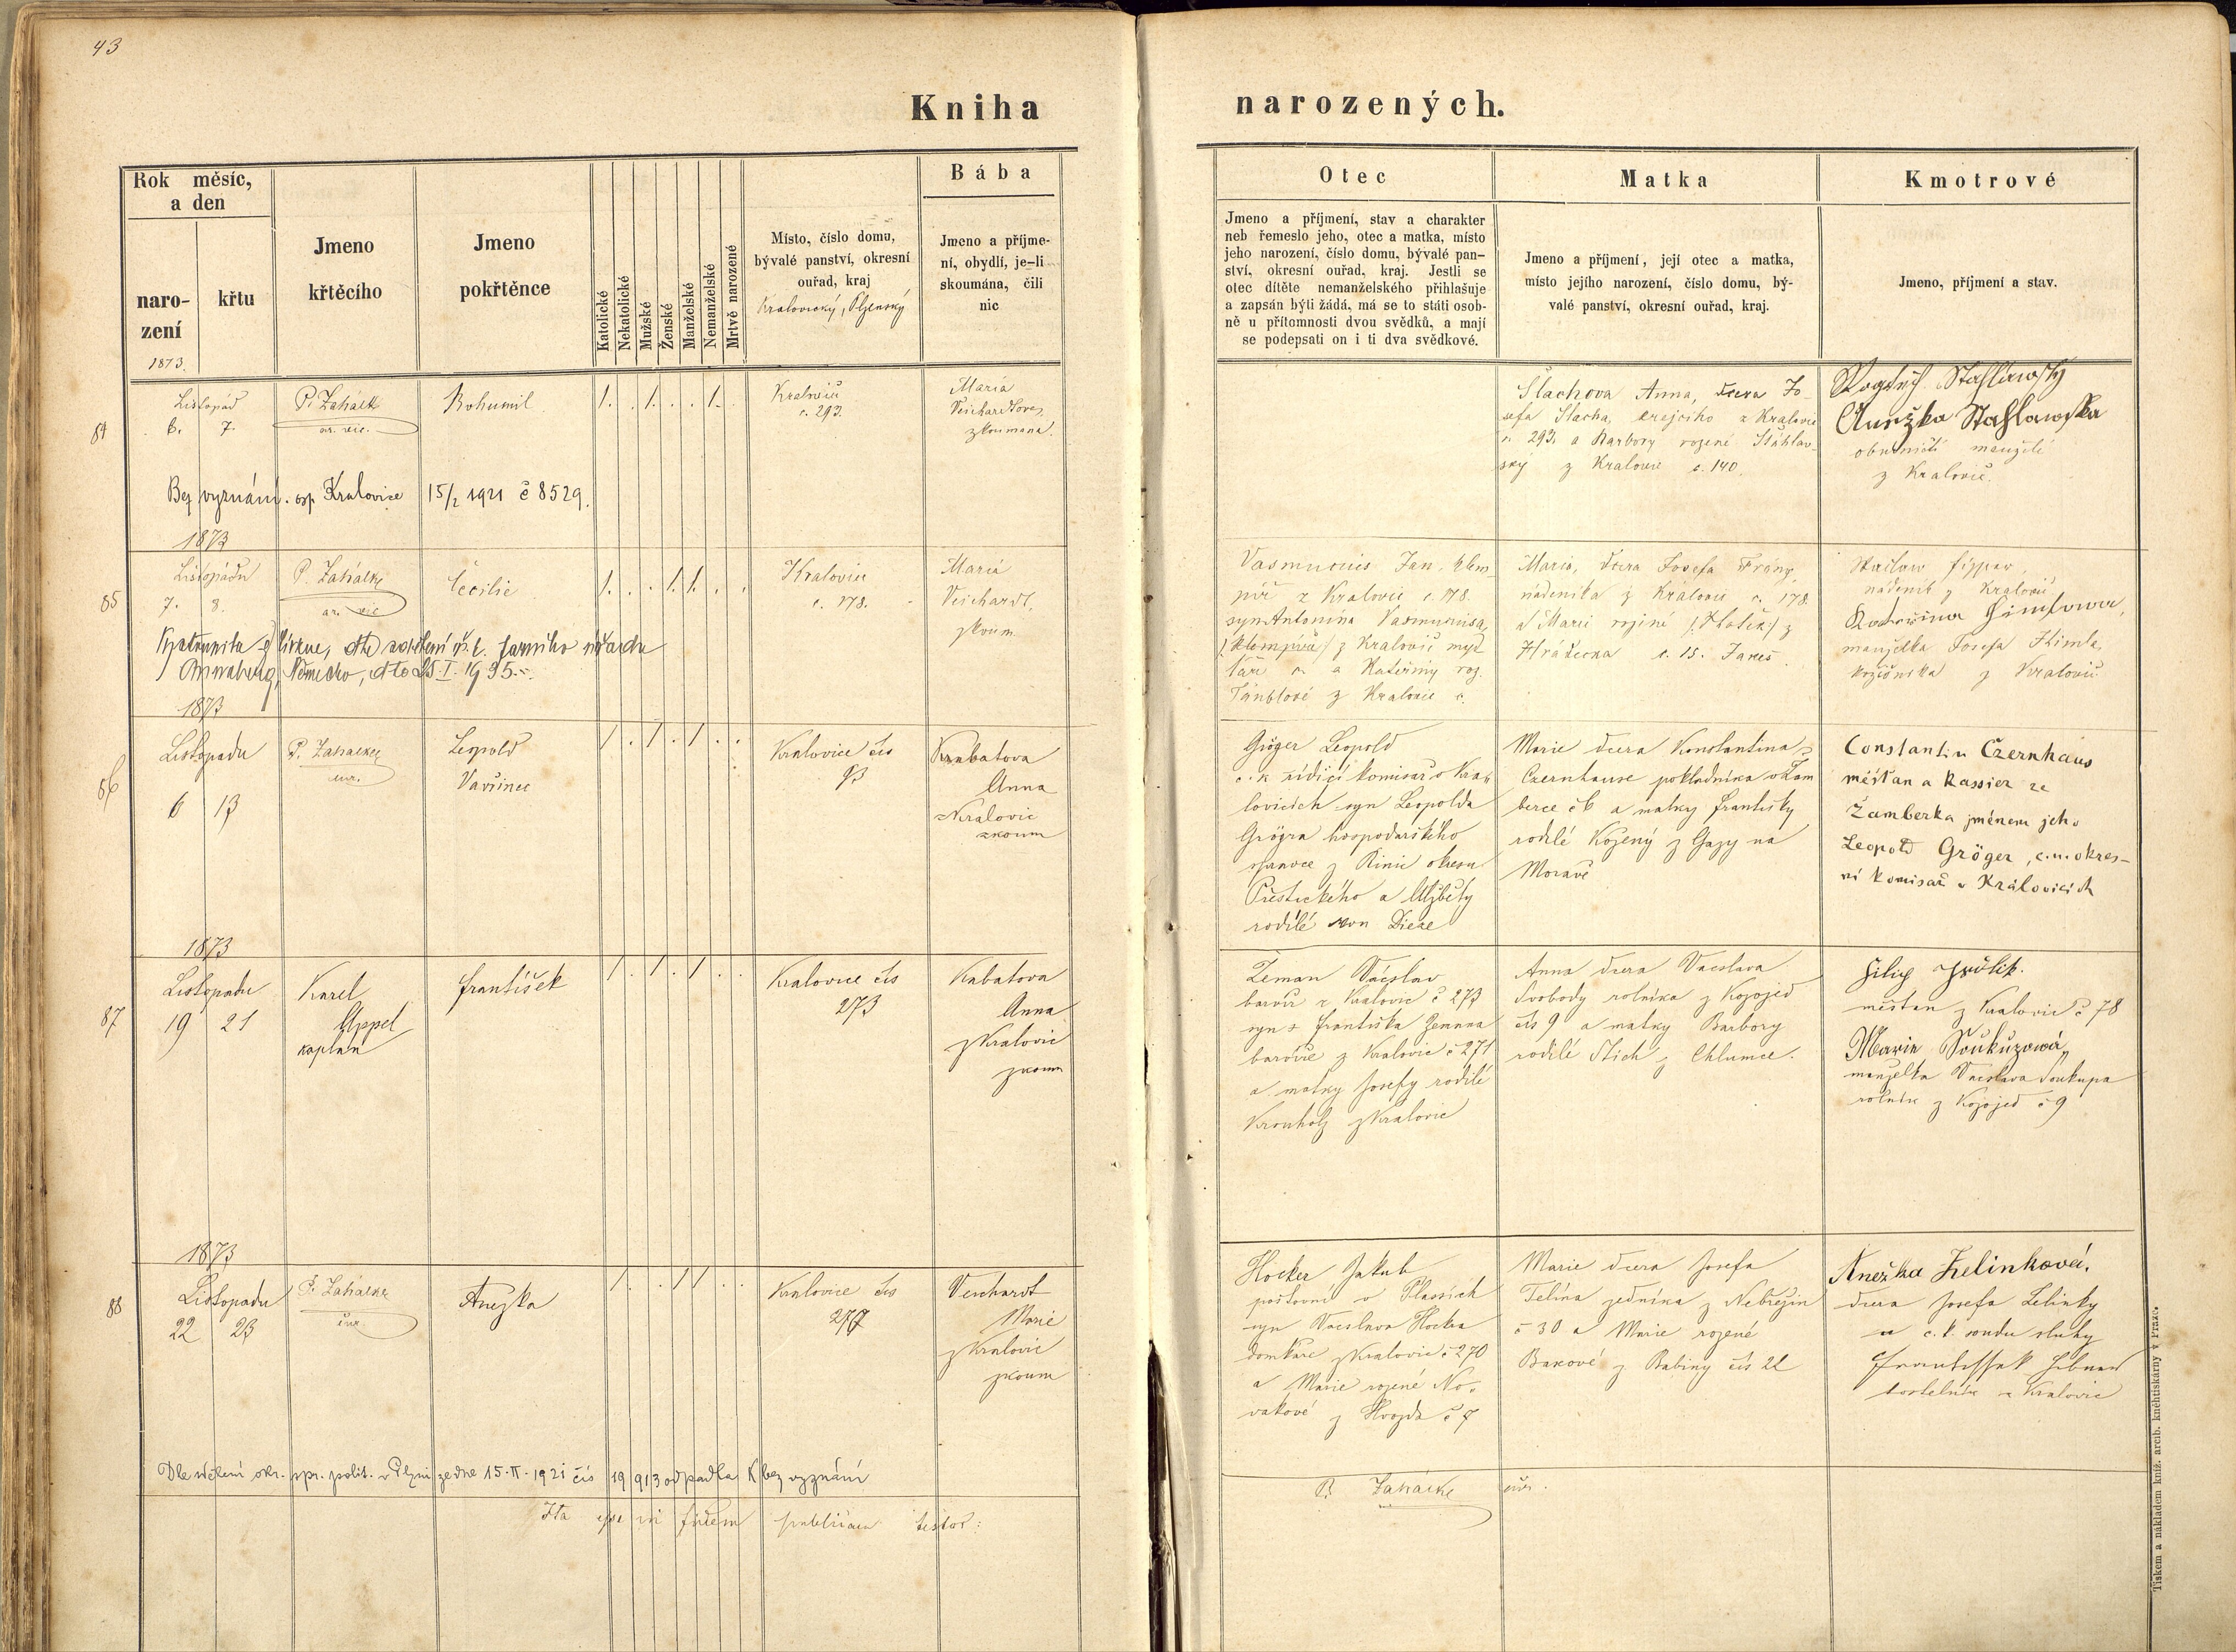 43
Kniha narozených.
Rok měsíc,
a den
naro-
zení
křtu
1873.
Jmeno
křtěcího
Jmeno
pokřtěnce
Katolické
Nekatolické
Mužské
Ženské
Manželské
Nemanželské
Mrtvě narozené
Místo, číslo domu,
bývalé panství, okresní
ouřad, kraj
Kralovický, Plzenský
Bába
Jmeno a příjme-
ní, obydlí, je-li
skoumána, čili
nic
Otec
Jmeno a příjmení, stav a charakter
neb řemeslo jeho, otec a matka, místo
jeho narození, číslo domu, bývalé pan-
ství, okresní ouřad, kraj. Jestli se
otec dítěte nemanželského přihlašuje
a zapsán býti žádá, má se to státi osob-
ně u přítomnosti dvou svědků, a mají
se podepsati on i ti dva svědkové.
Matka
Jmeno a příjmení, její otec a matka,
místo jejího narození, číslo domu, bý-
valé panství, okresní ouřad, kraj.
Kmotrové
Jmeno, příjmení a stav.
84
Listopad
6. 7.
P. Zahálk
Bohumil
1. . 1. . . 1. .
Kralovic
c. 293.
Maria
Veichardtova
zkoumana.
Slachova Anna, dcera Jo-
sefa Slacha, krejciho z Kralovic
c. 293. a Barbory rozené Stáhlav-
sky z Kralovic c. 140.
Stahlawsky
Anežka Stahlawska
obuvničtí manzelé
z Kralovic.
Bez vyznání. osp. Kralovice 15/2 1921 č 8529.
1873
85
Listopadu
7. 8.
P. Zahálka
Cecilie
1. . . 1. 1. . .
Kralovice
c. 178.
Maria
Veichardt,
zkoum.
Jan, klem-
píř z Kralovic c. 178.
syn Antonina
/:klempíře:/ z Kralovic myd-
láře c. a Kateřiny roz.
z Kralovic c.
Maria, dcera Josefa Franz,
nádeníka z Kralovic c. 178.
a Marie rozené
c. 15.
nádeník z Kralovic
manzelka Josefa
z Kralovic
dto 25. I. 1935.
1873
86
Listopadu
6 13
P. Zahálka
Leopold
Vavřinec
1 . 1 . 1 . .
Kralovice čis
93
Krabatova
Anna
z Kralovic
zkoum
Gröger Leopold
c. k. řídící komisař v Kra-
lovicích syn Leopolda
Grögra hospodarškého
správce z Rinic okresu
Přestického a Alžběty
rodilé von Dieze
Marie dcera Konstantina
Czernhause pokladníka v Žam
berce čk a matky Františky
rodilé Kozený z Gagy na
Moravě
Constantin Czernhaus
měšťan a kassier ze
Žamberka jménem jeho
Leopold Gröger, c. k. okres-
ní komisař v Královicích
1873
87
Listopadu
19 21
Karel
Appel
kaplan
František
1 . 1 . 1 . .
Kralovice čis
273
Kabatova
Anna
z Kralovic
zkoum
Zeman Václav
barvíř z Kralovic č 273
syn Františka Zemana
barvíře z Kralovic č 271
a matky Josefy rodilé
Kronholz z Kralovic
Anna dcera Vaclava
Svobody rolníka z Kozojed
čis 9 a matky Barbory
rodilé Stich z Chlumce.
měštan z Kralovic č 78
Marie Soukupowá,
manzelka Vaclava Soukupa
rolníka z Kozojed č 9
1873
88
Listopadu
22 23
P. Zahálka
Anezka
1 . . 1 1 . .
Kralovice čis
270
Veichardt
Marie
z Kralovic
zkoum
Hocker Jakub
poštovní v Plassích
syn Vaclava Hockra
domkáře z Kralovic č 270
a Marie rozené No-
vakové z Hvozda č 7
Marie dcera Josefa
Telína zedníka z Nebřezin
č 30 a Marie rozené
Bakové z Babiny čís 22
Anežka Zelinková,
dcera Josefa Zelinky
c. k. soudu sluhy
kostelník z Kralovic
Dle sdělení okr. spr. polit. v Plzni ze dne 15.II.1921 čís 19913 odpadla k bez vyznání
Ita esse in fidem publicam testor:
P. Zahálka
Tiskem a nákladem kníž. arcib. kněhtiskárny v Praze.